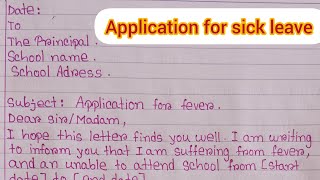 Date:
Application for sick leave
To
The Principal.
School name.
School Adress.
Subject: Application for fever.
Dear Sir/Madam,
I hope this letter finds you well. I am writing
to inform you that I am suffering from fever,
and an unable to attend school from [start
date] to [end date].